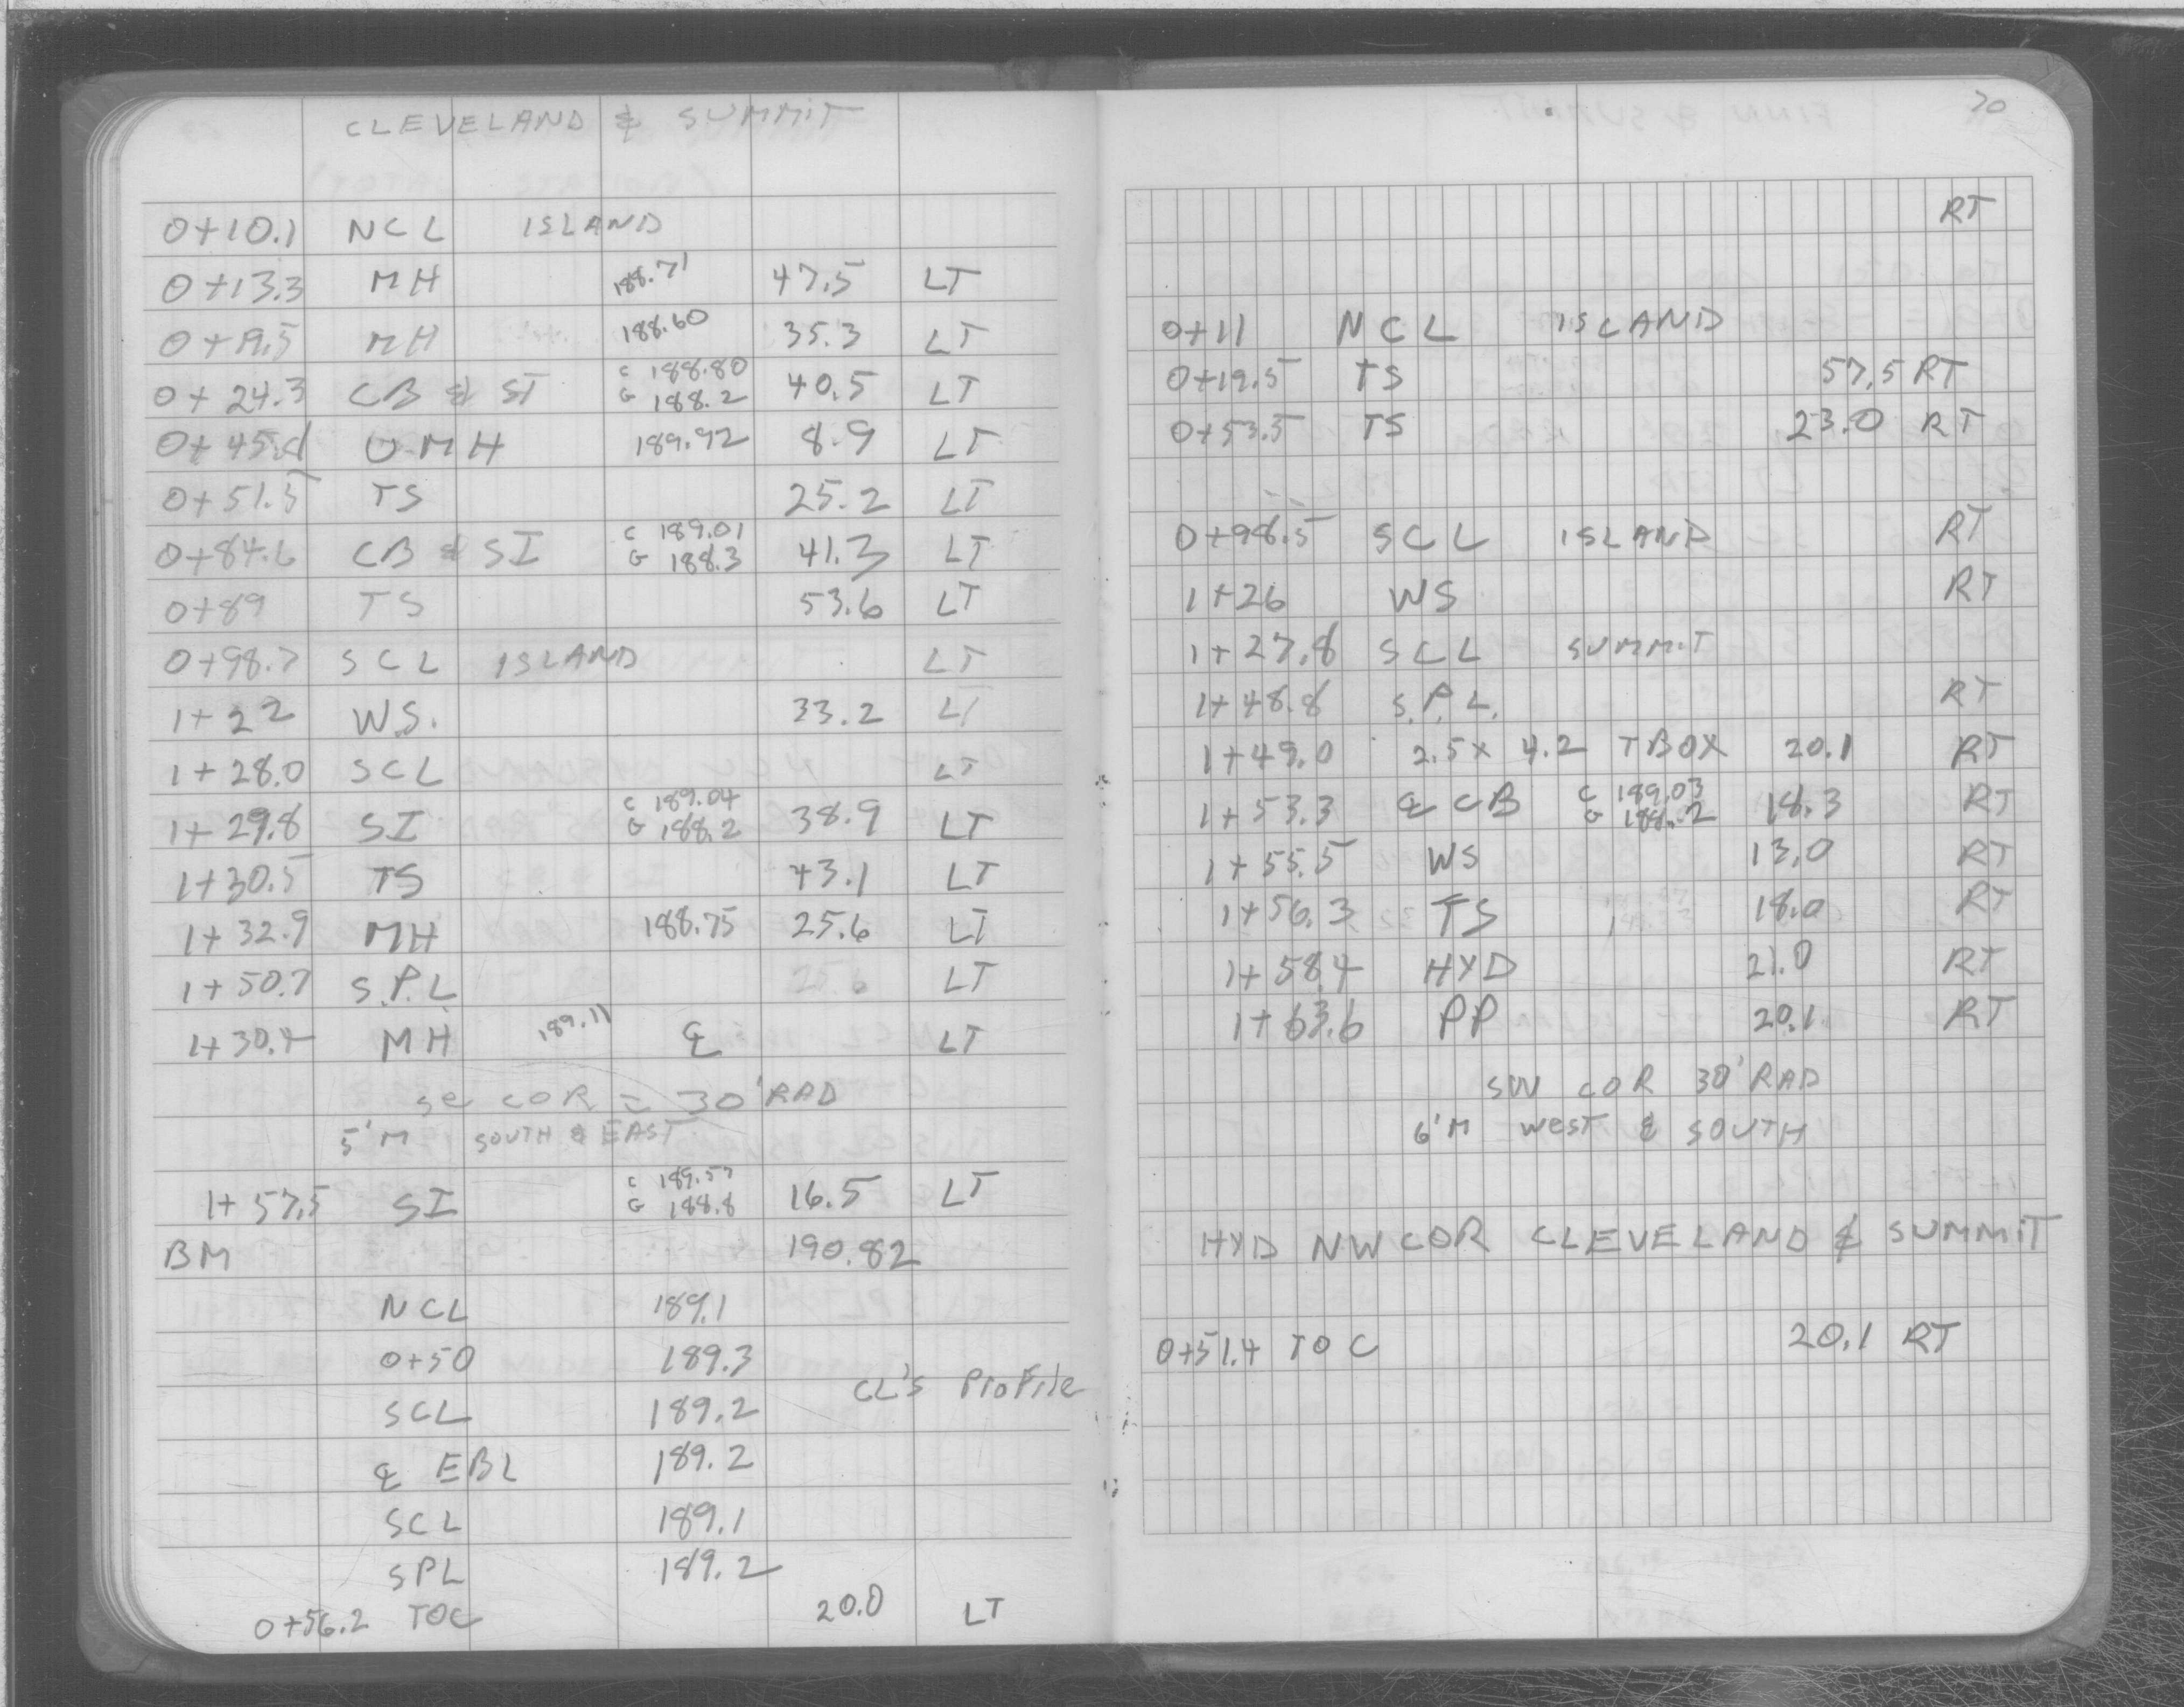 CLEVELAND & SUMMIT
0+10.1 NCL ISLAND
0+13.3 MH 188.71 47.5 LT
0+19.5 MH 188.60 35.3 LT
0+24.3 CB & SI C 188.80 G 188.2 40.5 LT
O-MH 189.92 8.9 LT
0+51.5 TS 25.2 LT
0+84.6 CB & SI C 189.01 G 188.3 41.3 LT
0+89 TS 53.6 LT
0+98.7 SCL ISLAND LT
1+22 W.S. 33.2 LT
1+28.0 SCL LT
1+29.8 SI C 189.04 G 188.2 38.9 LT
1+30.5 TS 43.1 LT
1+32.9 MH 188.75 25.6 LT
1+50.7 S.P.L LT
1+30.4 MH 189.11 ℄ LT
SE COR = 30' RAD
5'M SOUTH & EAST
1+57.5 SI C 189.57 G 188.8 16.5 LT
BM 190.82
NCL 189.1
0+50 189.3
CL's ProFile
SCL 189.2
℄ EBL 189.2
SCL 189.1
SPL 189.2
0+56.2 TOC 20.0 LT
70
RT
0+11 NCL ISLAND
0+19.5 TS 57.5 RT
0+53.5 TS 23.0 RT
0+98.5 SCL ISLAND RT
1+26 WS RT
1+27.8 SCL SUMMIT
1+48.8 S.P.L. RT
1+49.0 2.5 x 4.2 TBOX 20.1 RT
1+53.3 ℄ CB C 189.03 G 188.2 18.3 RT
1+55.5 WS 13.0 RT
1+56.3 TS 18.0 RT
1+58.4 HYD 21.0 RT
1+63.6 PP 20.1 RT
SW COR 30' RAD
6'M WEST & SOUTH
HYD NW COR CLEVELAND & SUMMIT
0+51.4 TOC 20.1 RT